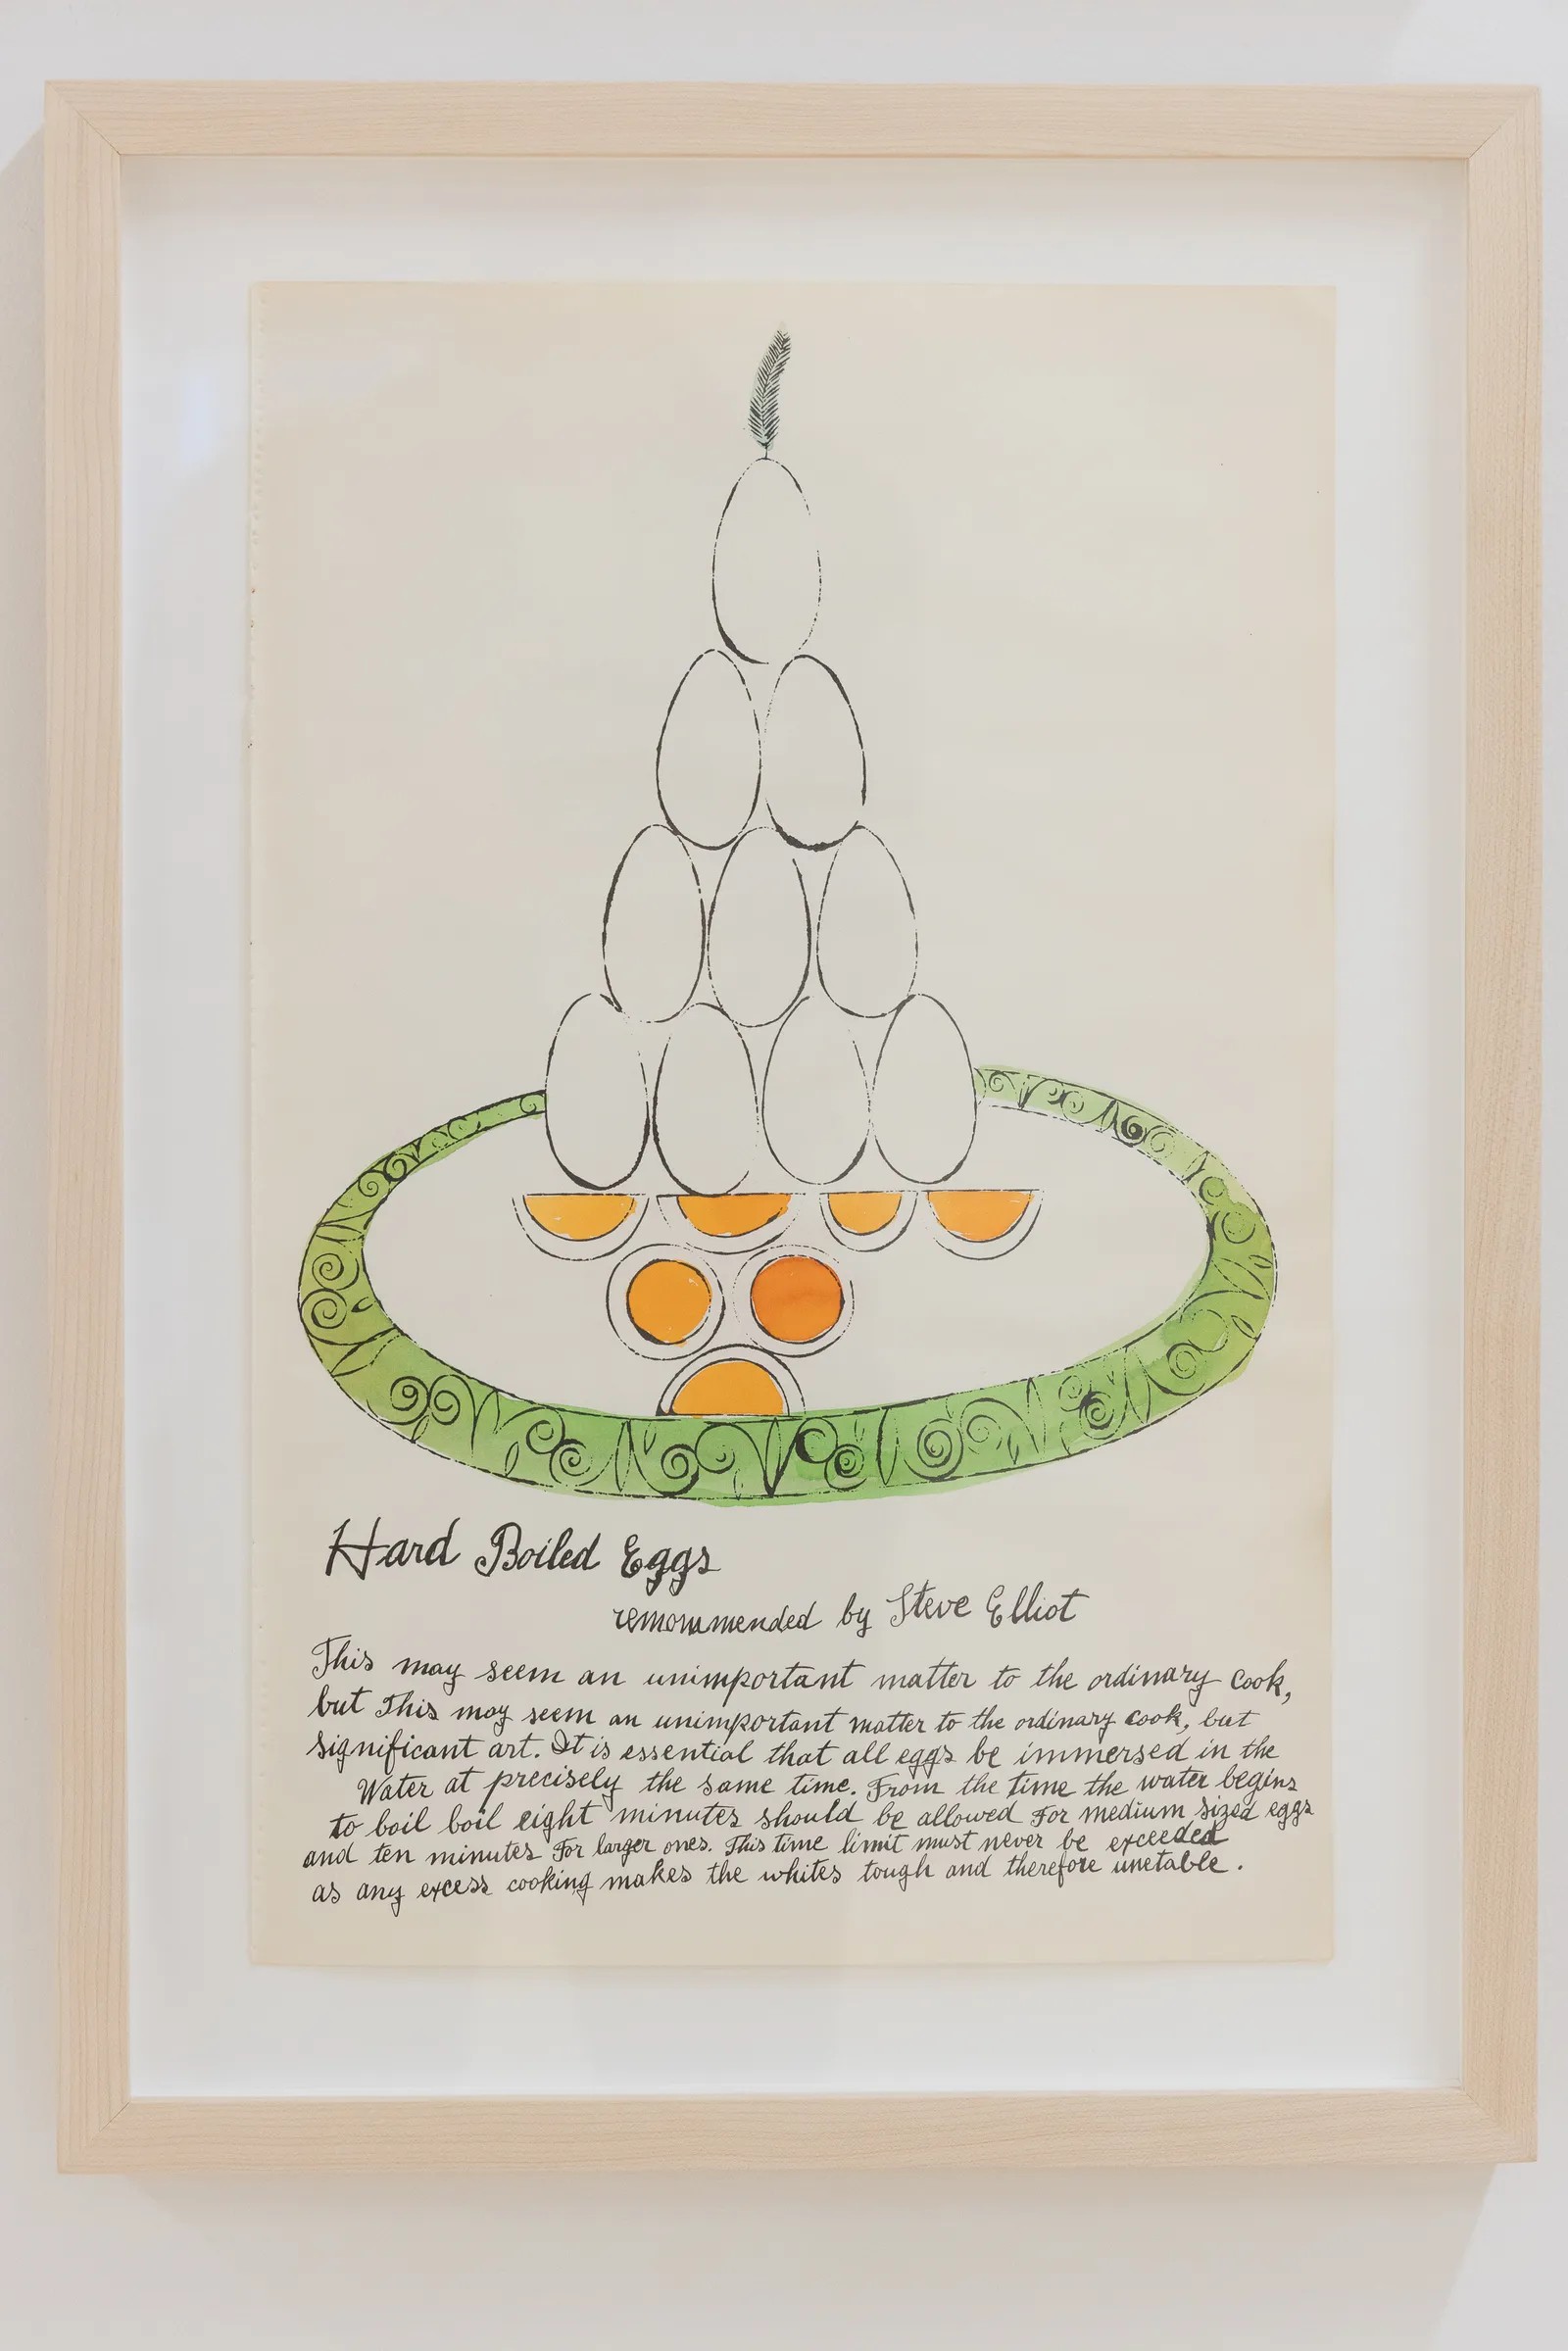 Hard Boiled Eggs
remommended by Steve Elliot
This may seem an unimportant matter to the ordinary cook,
but This may seem an unimportant matter to the ordinary cook, but
significant art. It is essential that all eggs be immersed in the
Water at precisely the same time. From the time the water begins
to boil boil eight minutes should be allowed For medium sized eggs
and ten minutes For larger ones. This time limit must never be exceeded
as any excess cooking makes the whites tough and therefore unetable.